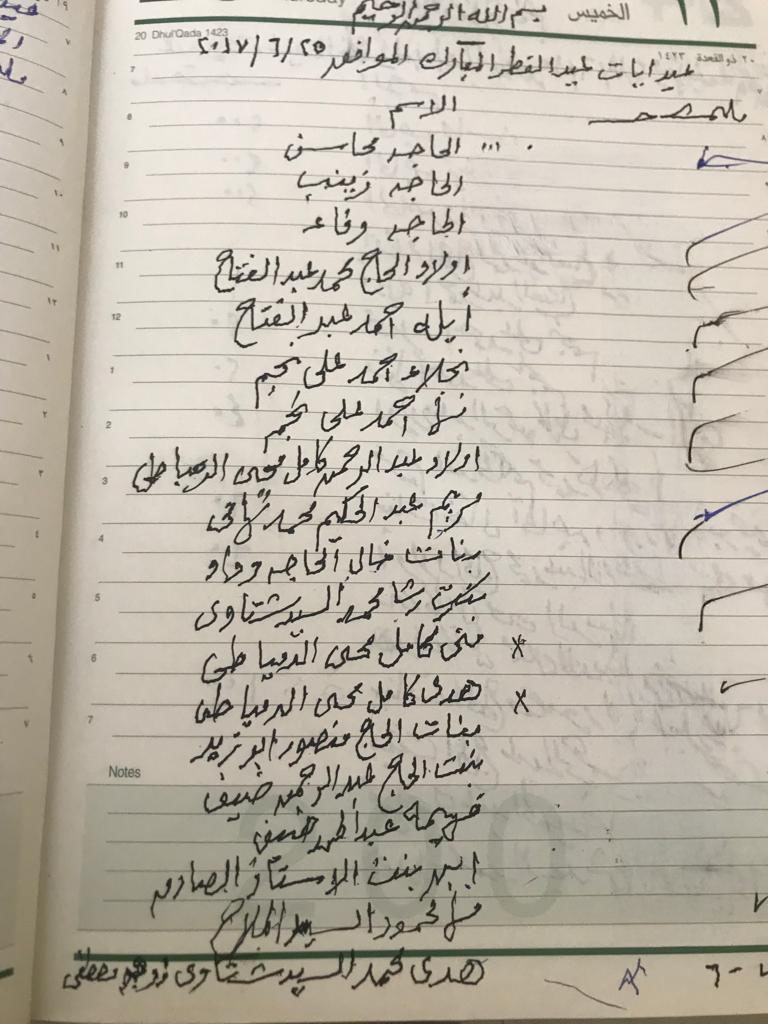 الخميس بسم الله الرحمن الرحيم
20 Dhul'Qada 1423 ٢٠ ذو القعدة ١٤٢٣
عيدايات عيد الفطر المبارك الموافق ٢٠١٧/٦/٢٥
الاسم
الحاجه محاسن
الحاجه زينب
الحاجه وفاء
اولاد الحاج محمد عبد الفتاح
أيله احمد عبد الفتاح
نجلاء احمد على نجم
احمد على نجم
اولاد عبد الرحمن كامل محى الدمياطى
مريم عبد الحكيم محمد تهامى
بنات خال الحاجه وداد
بنت رشا محمد السيد شتاوى
منى كامل محى الدمياطى *
هدى كامل محى الدمياطى x
بنات الحاج منصور ابو تريد
بنت الحاج عبد الرحمن ضيف
Notes
فهيمه عبد الرحمن ضيف
بنت الاستاذ الصادم
محمود السيد الملاح
هدى محمد السيد شتاوى زوجه مصطفى